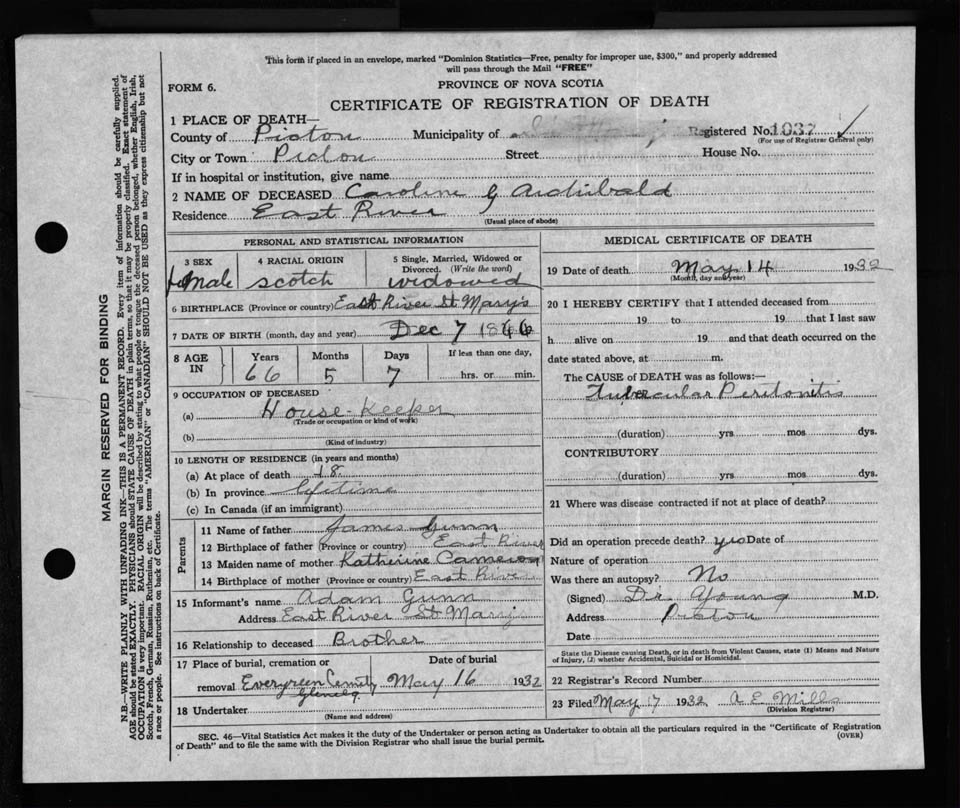 This form if placed in an envelope, marked "Dominion Statistics—Free, penalty for improper use, $300," and properly addressed
will pass through the Mail "FREE"
FORM 6.
PROVINCE OF NOVA SCOTIA
CERTIFICATE OF REGISTRATION OF DEATH
1 PLACE OF DEATH—
County of Pictou Municipality of Registered No. 1037
(For use of Registrar General only)
City or Town Pictou Street House No.
If in hospital or institution, give name
2 NAME OF DECEASED Caroline G Archibald
Residence East River
(Usual place of abode)
PERSONAL AND STATISTICAL INFORMATION
3 SEX 4 RACIAL ORIGIN 5 Single, Married, Widowed or
Divorced. (Write the word)
female scotch widowed
6 BIRTHPLACE (Province or country) East River St Mary's
7 DATE OF BIRTH (month, day and year) Dec 7 18
8 AGE IN Years Months Days If less than one day,
66 5 7 hrs. or min.
9 OCCUPATION OF DECEASED
(a) House-Keeper
(Trade or occupation or kind of work)
(b)
(Kind of industry)
10 LENGTH OF RESIDENCE (in years and months)
(a) At place of death 18
(b) In province lifetime
(c) In Canada (if an immigrant)
Parents
11 Name of father James Gunn
12 Birthplace of father (Province or country) East River
13 Maiden name of mother Katherine Cameron
14 Birthplace of mother (Province or country) East River
15 Informant's name Adam Gunn
Address East River St Marys
16 Relationship to deceased Brother
17 Place of burial, cremation or Date of burial
removal Evergreen Cemty May 16 1932
Glenelg
18 Undertaker
(Name and address)
MEDICAL CERTIFICATE OF DEATH
19 Date of death May 14 1932
(Month, day and year)
20 I HEREBY CERTIFY that I attended deceased from
19 to 19 that I last saw
h alive on 19 and that death occurred on the
date stated above, at m.
The CAUSE of DEATH was as follows:—
Tubercular Peritonitis
(duration) yrs mos dys.
CONTRIBUTORY
(duration) yrs mos dys.
21 Where was disease contracted if not at place of death?
Did an operation precede death? yes Date of
Nature of operation
Was there an autopsy? No
(Signed) Dr. Young M.D.
Address Pictou
Date
State the Disease causing Death, or in death from Violent Causes, state (1) Means and Nature
of Injury, (2) whether Accidental, Suicidal or Homicidal.
22 Registrar's Record Number
23 Filed May 17 1932 A E Mills
(Division Registrar)
SEC. 46—Vital Statistics Act makes it the duty of the Undertaker or person acting as Undertaker to obtain all the particulars required in the "Certificate of Registration
of Death" and to file the same with the Division Registrar who shall issue the burial permit. (OVER)
MARGIN RESERVED FOR BINDING
N.B.—WRITE PLAINLY WITH UNFADING INK—THIS IS A PERMANENT RECORD. Every item of information should be carefully supplied.
AGE should be stated EXACTLY. PHYSICIANS should STATE CAUSE OF DEATH in plain terms, so that it may be properly classified. Exact statement of
OCCUPATION is very important. RACIAL ORIGIN will be described by stating to what people or tongue the deceased person belonged, whether English, Irish,
Scotch, French, German, Russian, Ruthenian, etc. The terms "AMERICAN" or "CANADIAN" SHOULD NOT BE USED as they express citizenship but not
a race or people. See instructions on back of Certificate.